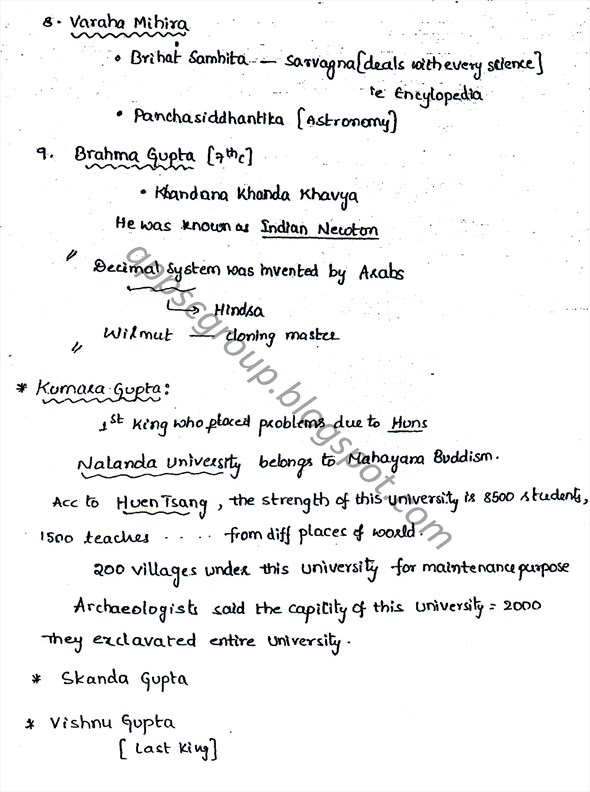 8. Varaha Mihira
• Brihat Samhita — Sarvagna [deals with every science]
ie Encylopedia
• Panchasiddhantika [Astronomy]
9. Brahma Gupta [7th c]
• Khandana Khanda Khavya
He was known as Indian Newton
" Decimal System was invented by Arabs
↳ Hindsa
" Wilmut — cloning master
* Kumara Gupta:
1st King who placed problems due to Huns
Nalanda University belongs to Mahayana Buddism.
Acc to Huen Tsang, the strength of this university is 8500 students,
1500 teaches ..... from diff places of world.
200 villages under this university for maintenance purpose
Archaeologists said the capility of this university = 2000
They exclavated entire university.
* Skanda Gupta
* Vishnu Gupta
[Last King]
appscgroup.blogspot.com